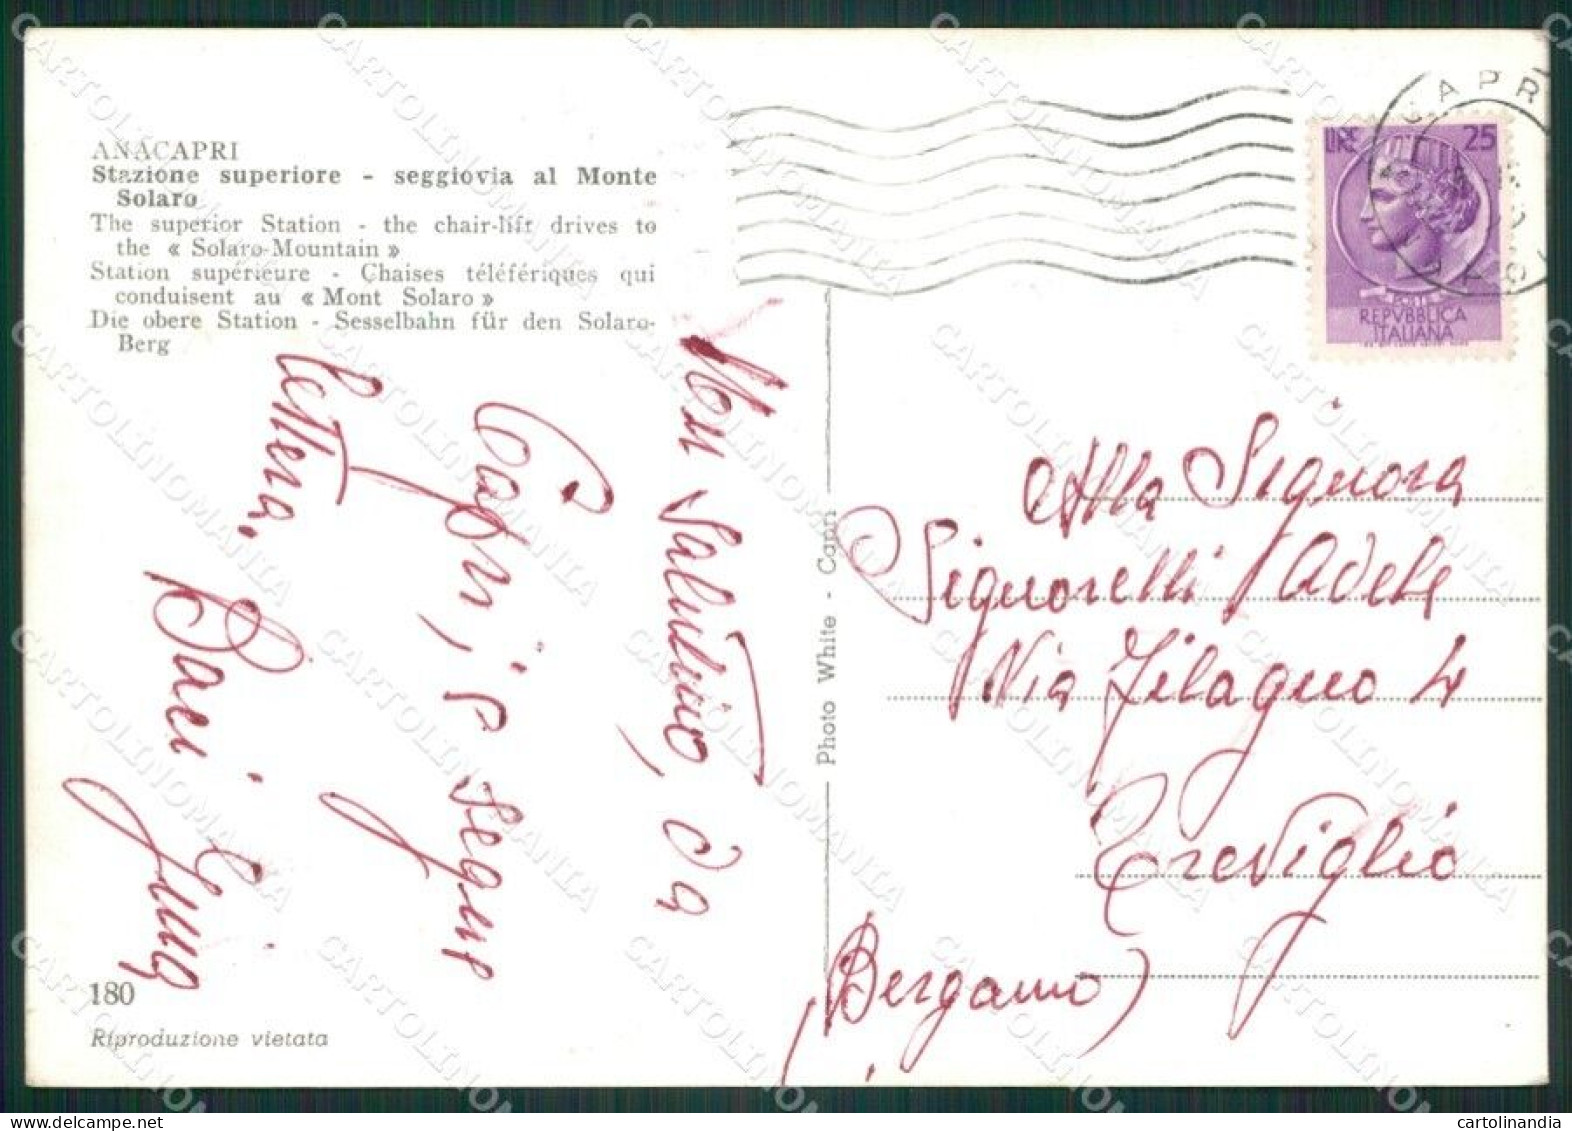 ANACAPRI
Stazione superiore - seggiovia al Monte
Solaro
The superior Station - the chair-lift drives to
the « Solaro-Mountain »
Station supérieure - Chaises téléfériques qui
conduisent au « Mont Solaro »
Die obere Station - Sesselbahn für den Solaro-
Berg
salutino, da
Capri,
lettera.
Baci
180
Riproduzione vietata
Photo White - Capri
CAPRI
LIRE 25
REPVBBLICA
ITALIANA
Alla Signora
Signorelli Adele
Via Filagno 4
Treviglio
(Bergamo)
CARTOLINOMANIA
cartolinandia